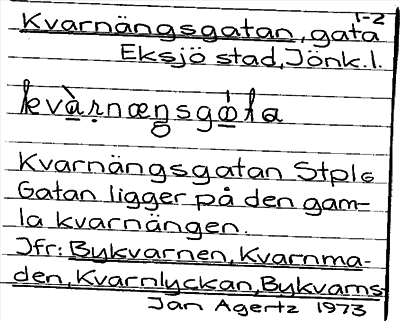 1-2
Kvarnängsgatan, gata
Eksjö stad, Jönk.l.
Kvarnängsgatan Stpl6
Gatan ligger på den gam-
la kvarnängen.
Jfr: Bykvarnen, Kvarnma-
den, Kvarnlyckan, Bykvarns-
Jan Agertz 1973